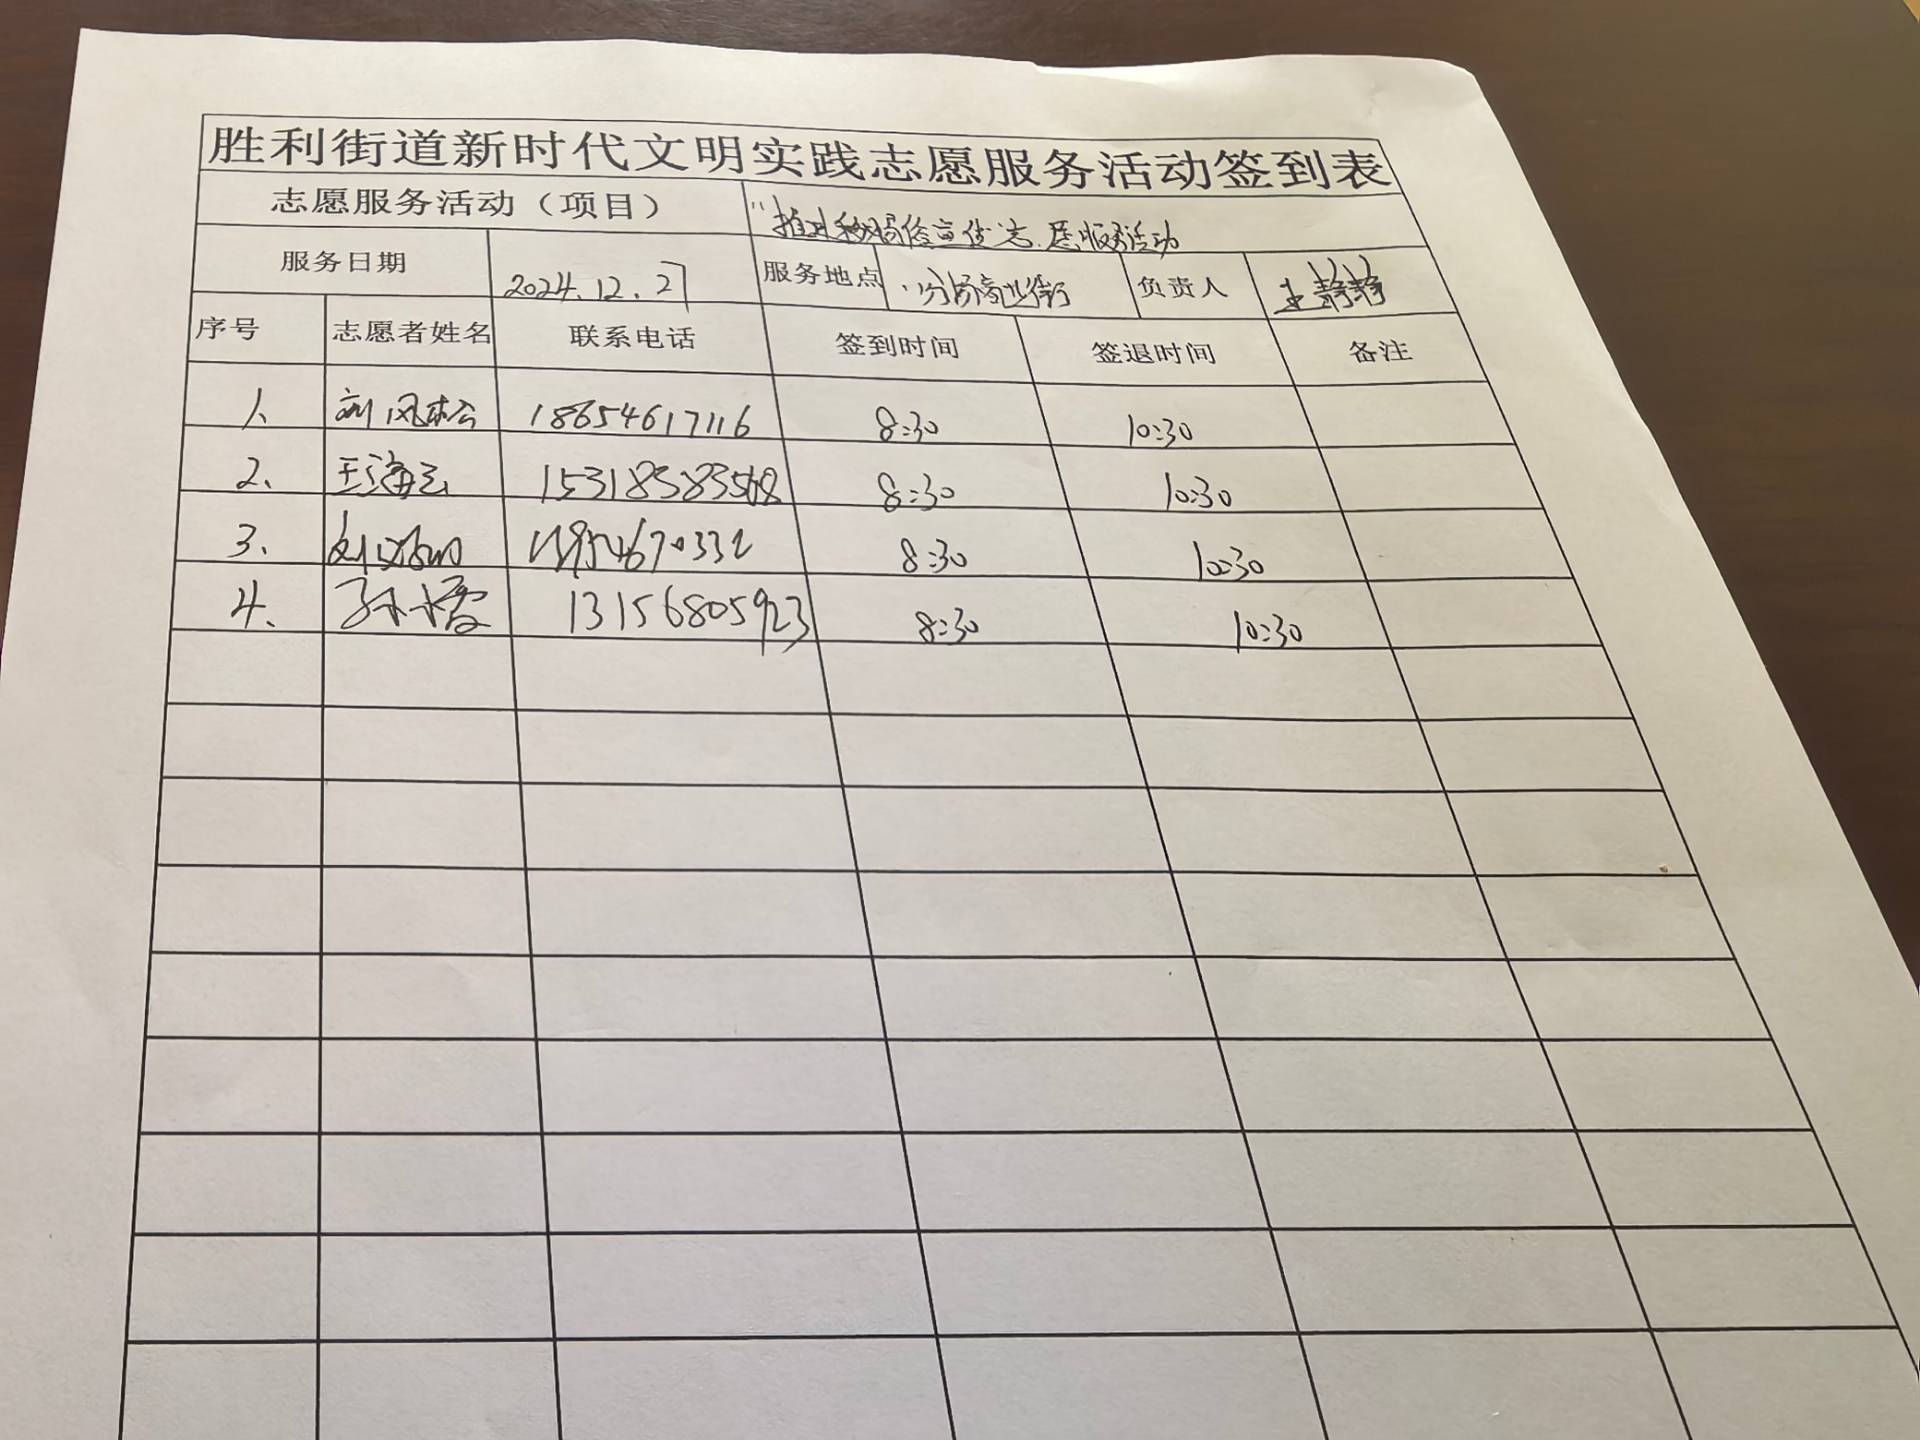 胜利街道新时代文明实践志愿服务活动签到表
志愿服务活动（项目） "推进移风易俗宣传志愿服务活动
服务日期 2024.12.27 服务地点 商业街 负责人 王静静
序号 志愿者姓名 联系电话 签到时间 签退时间 备注
1、 刘风松 18654617116 8:30 10:30
2、 王海云 15318383568 8:30 10:30
3、 刘 8:30 10:30
4、 孙小霞 13156805923 8:30 10:30